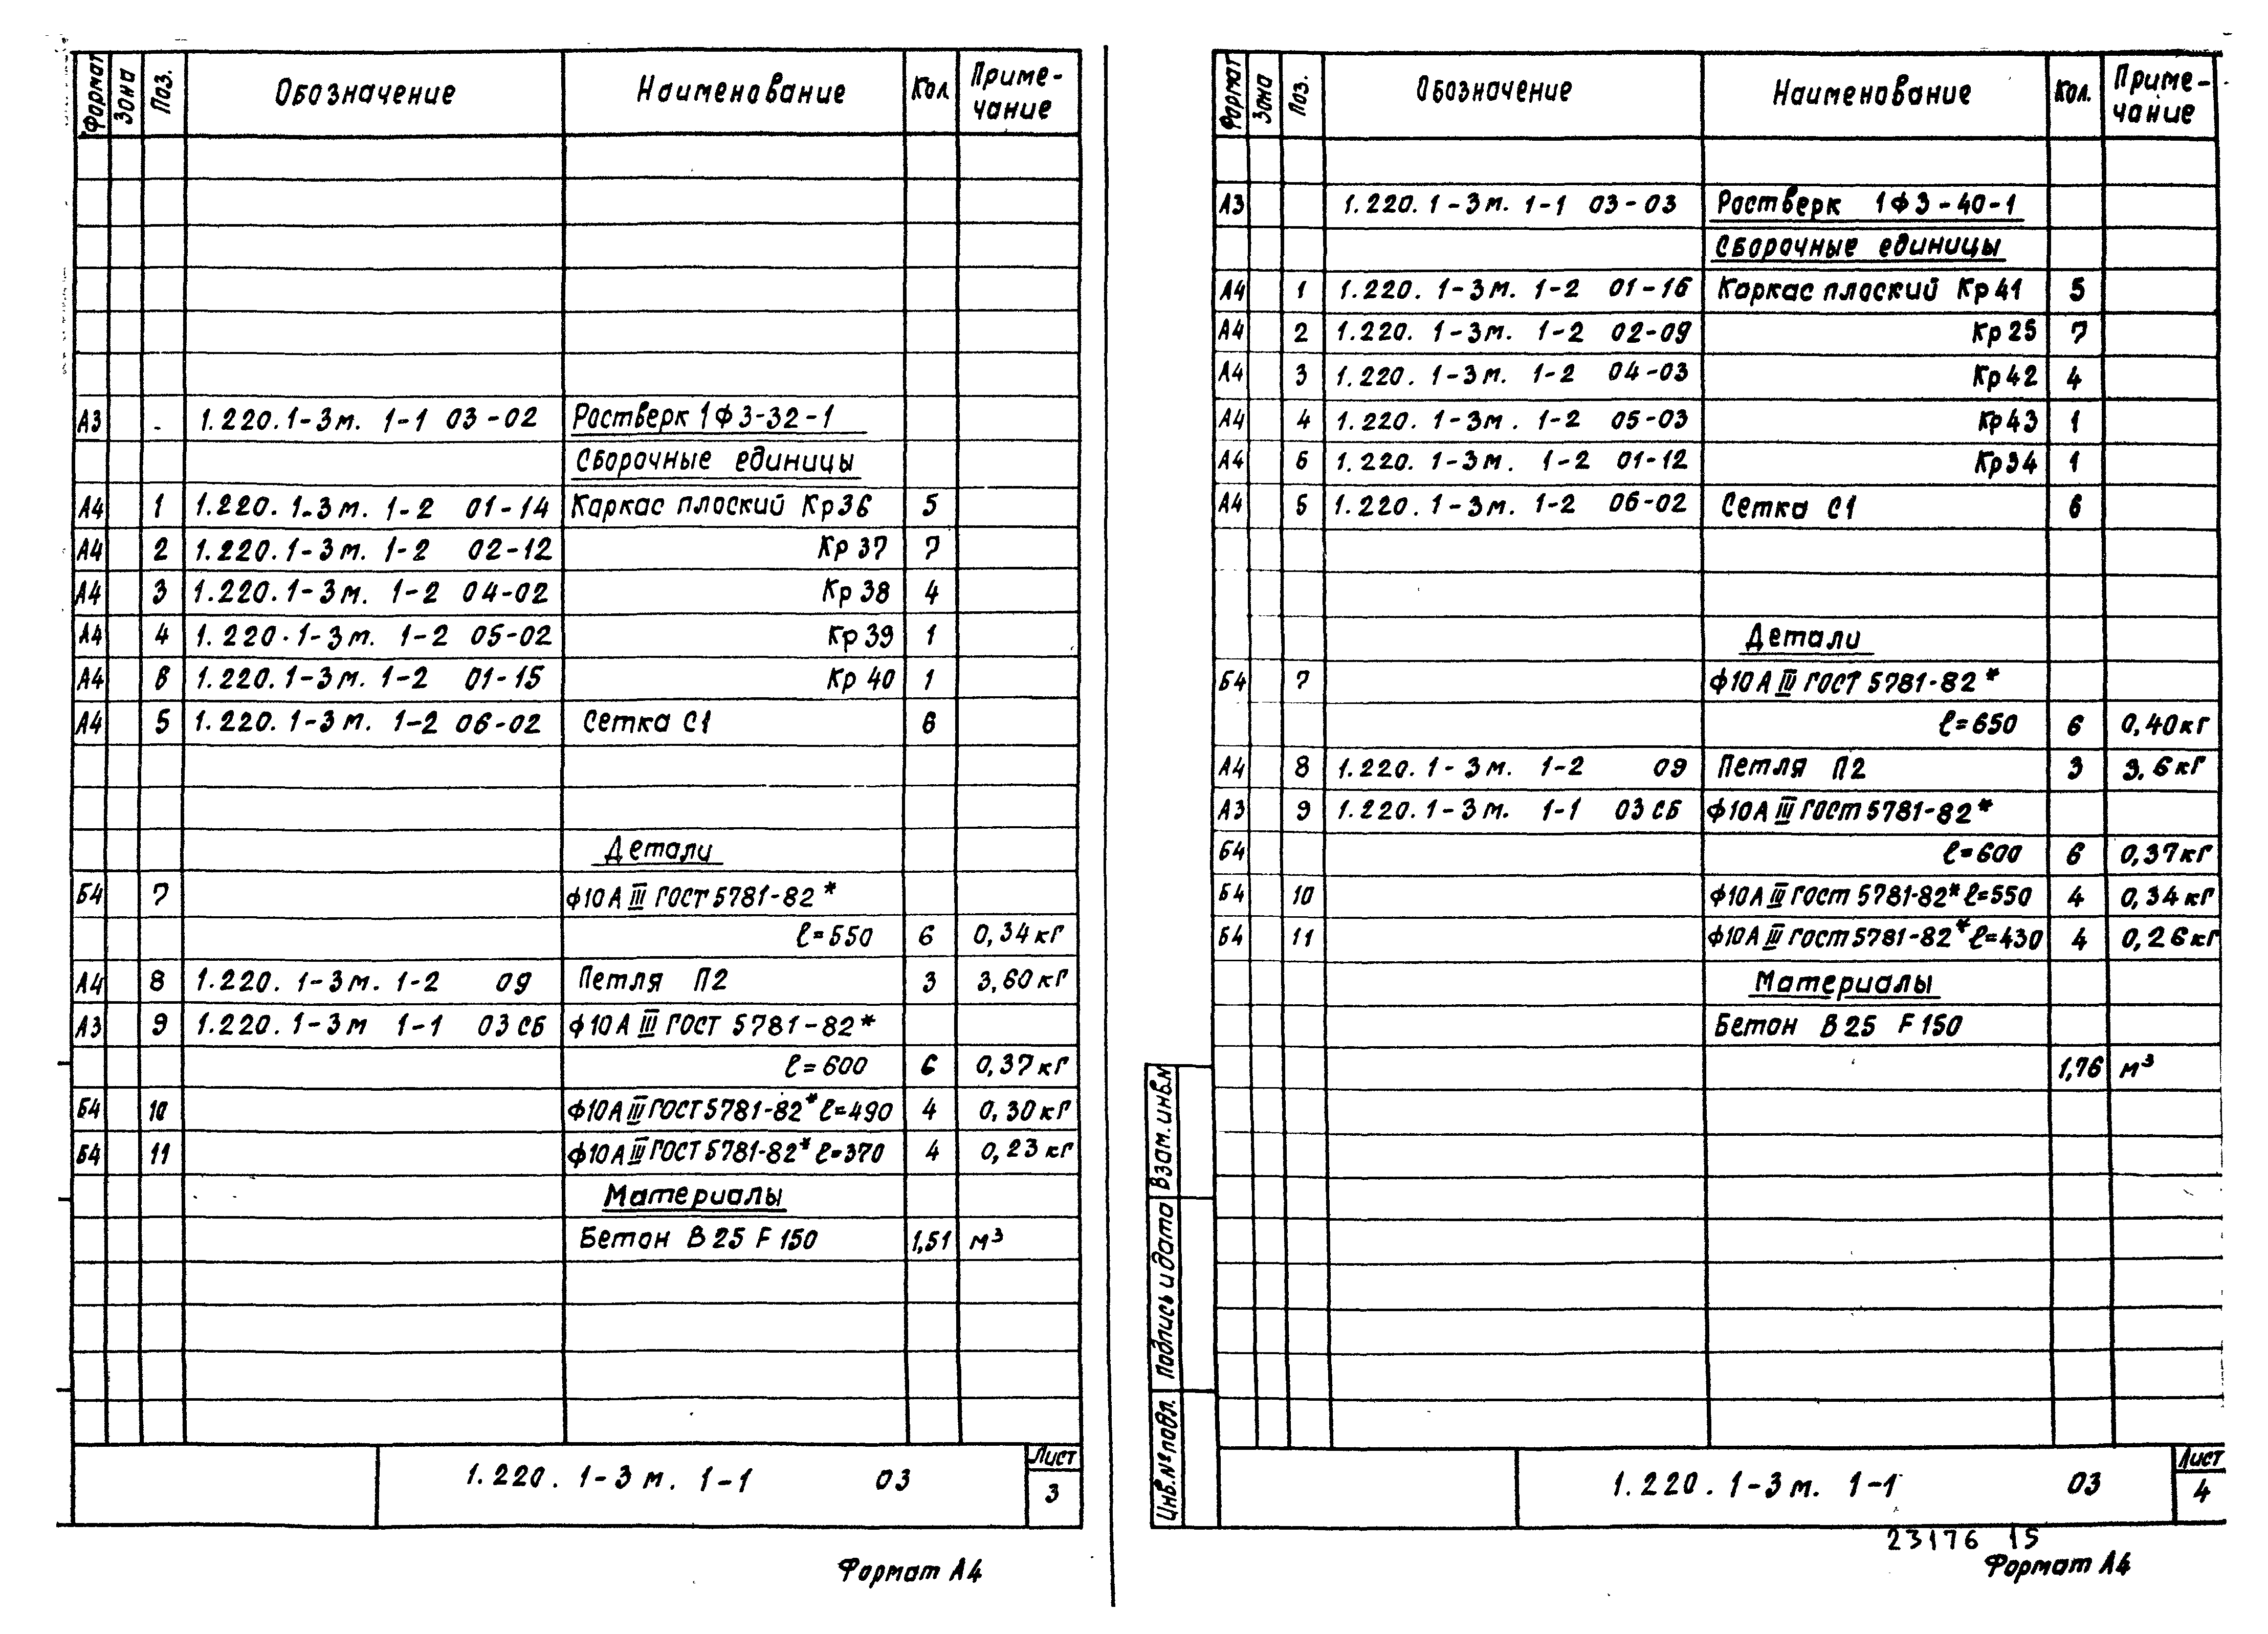 Формат Зона Поз. Обозначение Наименование Кол Приме-
чание
А3 1.220.1-3м. 1-1 03-02 Ростверк 1Ф3-32-1
Сборочные единицы
А4 1 1.220.1-3м. 1-2 01-14 Каркас плоский Кр36 5
А4 2 1.220.1-3м. 1-2 02-12 Кр 37 7
А4 3 1.220.1-3м. 1-2 04-02 Кр 38 4
А4 4 1.220.1-3м. 1-2 05-02 Кр 39 1
А4 6 1.220.1-3м. 1-2 01-15 Кр 40 1
А4 5 1.220.1-3м. 1-2 06-02 Сетка С1 6
Детали
Б4 7 ф10АIII ГОСТ 5781-82*
ℓ=550 6 0,34кг
А4 8 1.220.1-3м. 1-2 09 Петля П2 3 3,60кг
А3 9 1.220.1-3м 1-1 03СБ ф10АIII ГОСТ 5781-82*
ℓ=600 6 0,37кг
Б4 10 ф10АIII ГОСТ 5781-82* ℓ=490 4 0,30кг
Б4 11 ф10АIII ГОСТ 5781-82* ℓ=370 4 0,23кг
Материалы
Бетон В25 F150 1,51 м³
1.220.1-3м. 1-1 03 Лист
3
Формат А4
Формат Зона Поз. Обозначение Наименование Кол. Приме-
чание
А3 1.220.1-3м. 1-1 03-03 Ростверк 1Ф3-40-1
Сборочные единицы
А4 1 1.220.1-3м. 1-2 01-16 Каркас плоский Кр41 5
А4 2 1.220.1-3м. 1-2 02-09 Кр25 7
А4 3 1.220.1-3м. 1-2 04-03 Кр42 4
А4 4 1.220.1-3м. 1-2 05-03 Кр43 1
А4 6 1.220.1-3м. 1-2 01-12 Кр34 1
А4 5 1.220.1-3м. 1-2 06-02 Сетка С1 6
Детали
Б4 7 ф10АIII ГОСТ 5781-82*
ℓ=650 6 0,40кг
А4 8 1.220.1-3м. 1-2 09 Петля П2 3 3,6кг
А3 9 1.220.1-3м. 1-1 03СБ ф10АIII ГОСТ 5781-82*
Б4 ℓ=600 6 0,37кг
Б4 10 ф10АIII ГОСТ 5781-82* ℓ=550 4 0,34кг
Б4 11 ф10АIII ГОСТ 5781-82* ℓ=430 4 0,26кг
Материалы
Бетон В25 F150
1,76 м³
Взам.инв.№
Подпись и дата
Инв.№ подл.
1.220.1-3м. 1-1 03 Лист
4
23176 15
Формат А4